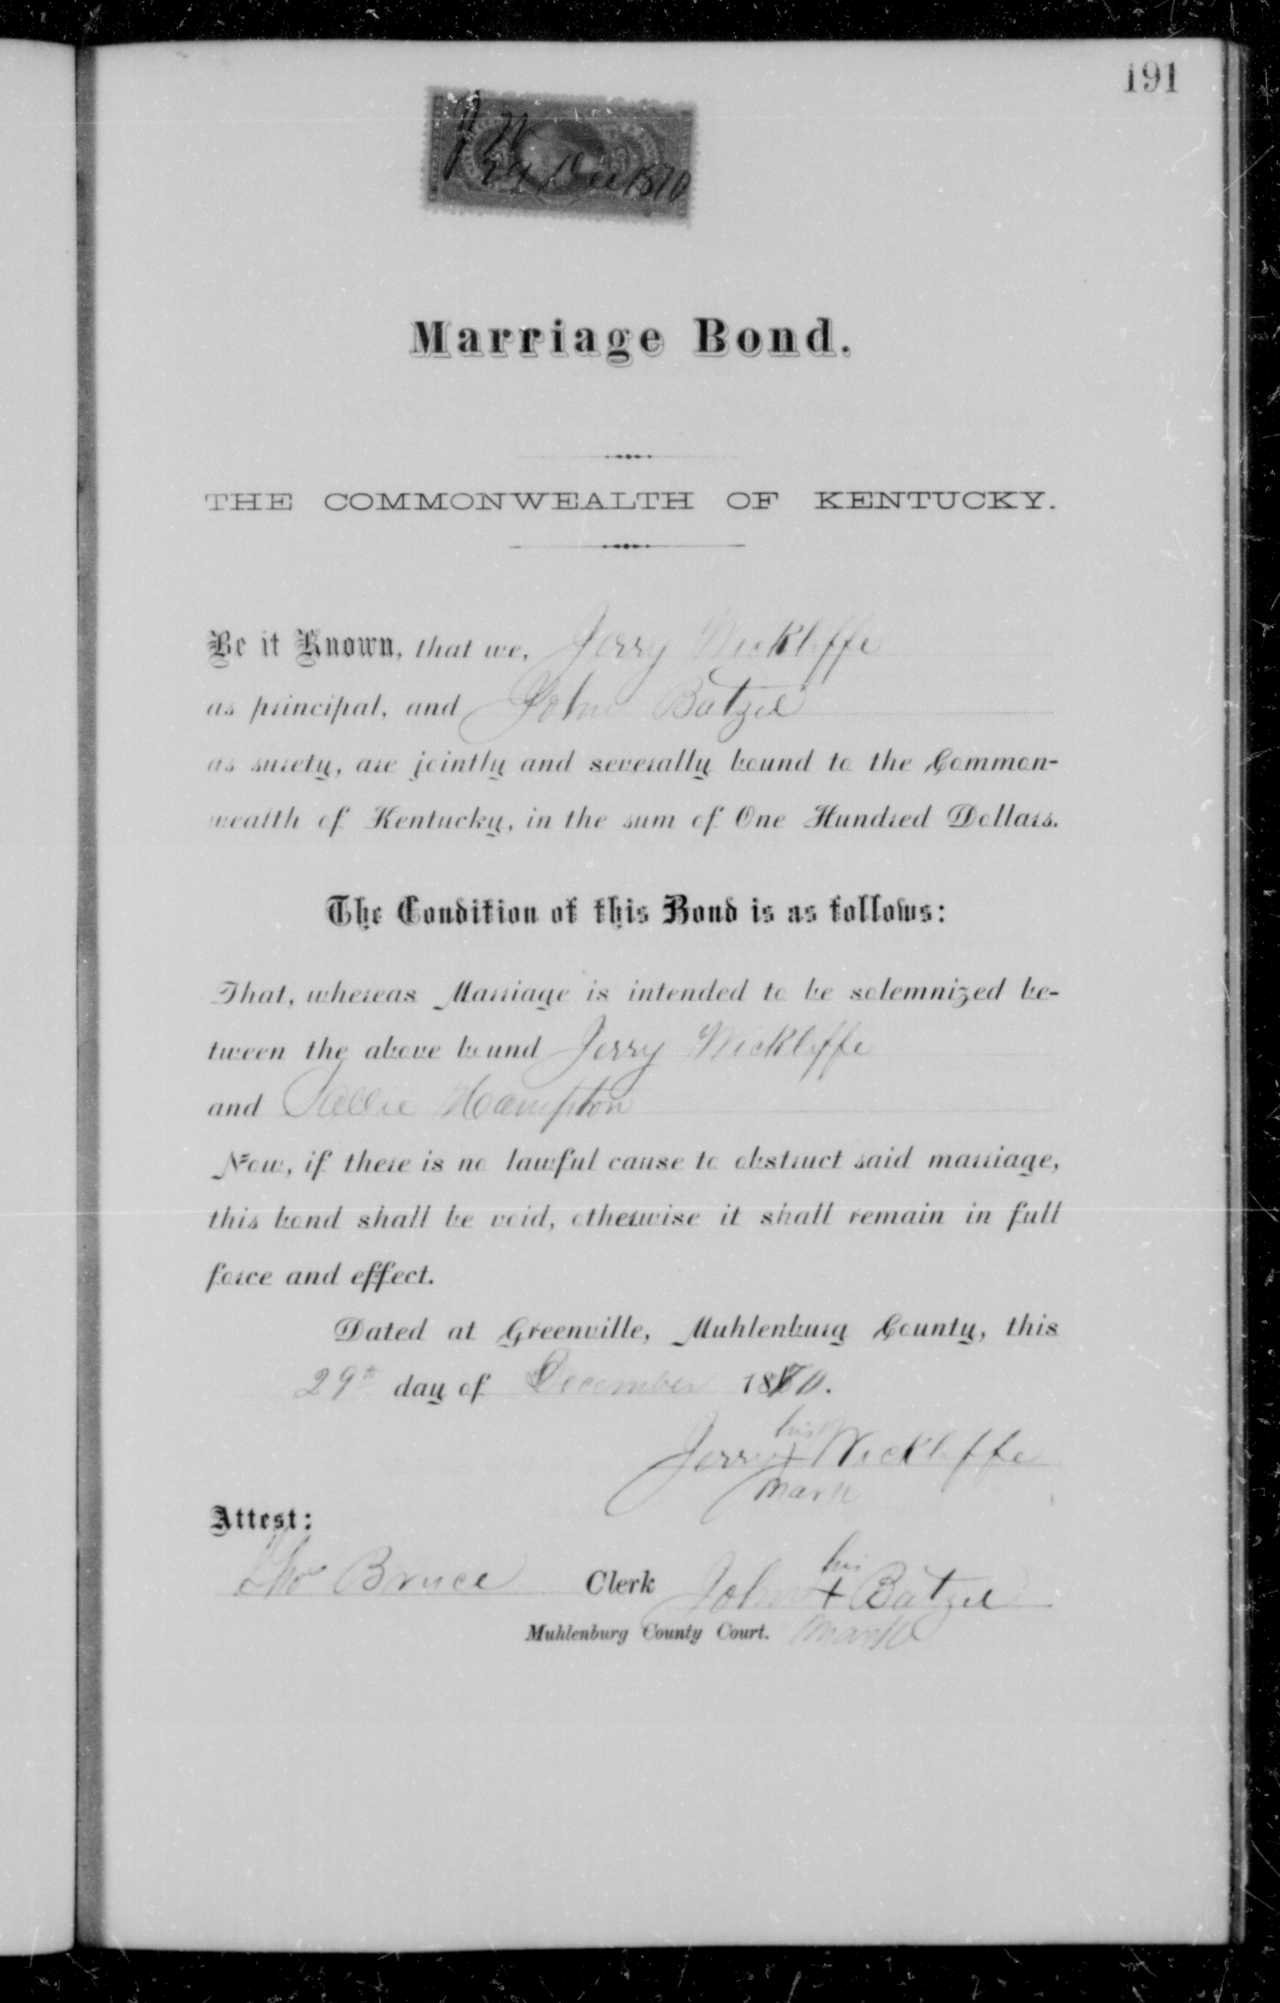 191
J W
29 Dec 1870
Marriage Bond.
THE COMMONWEALTH OF KENTUCKY.
Be it Known, that we, Jerry Wickliffe
as principal, and John Batzel
as surety, are jointly and severally bound to the Common-
wealth of Kentucky, in the sum of One Hundred Dollars.
The Condition of this Bond is as follows:
That, whereas Marriage is intended to be solemnized be-
tween the above bound Jerry Wickliffe
and Sallie Hampton
Now, if there is no lawful cause to obstruct said marriage,
this bond shall be void, otherwise it shall remain in full
force and effect.
Dated at Greenville, Muhlenburg County, this
29th day of December 1870.
his
Jerry + Wickliffe
mark
Attest:
his
Tho Bruce Clerk John + Batzel
Muhlenburg County Court. mark